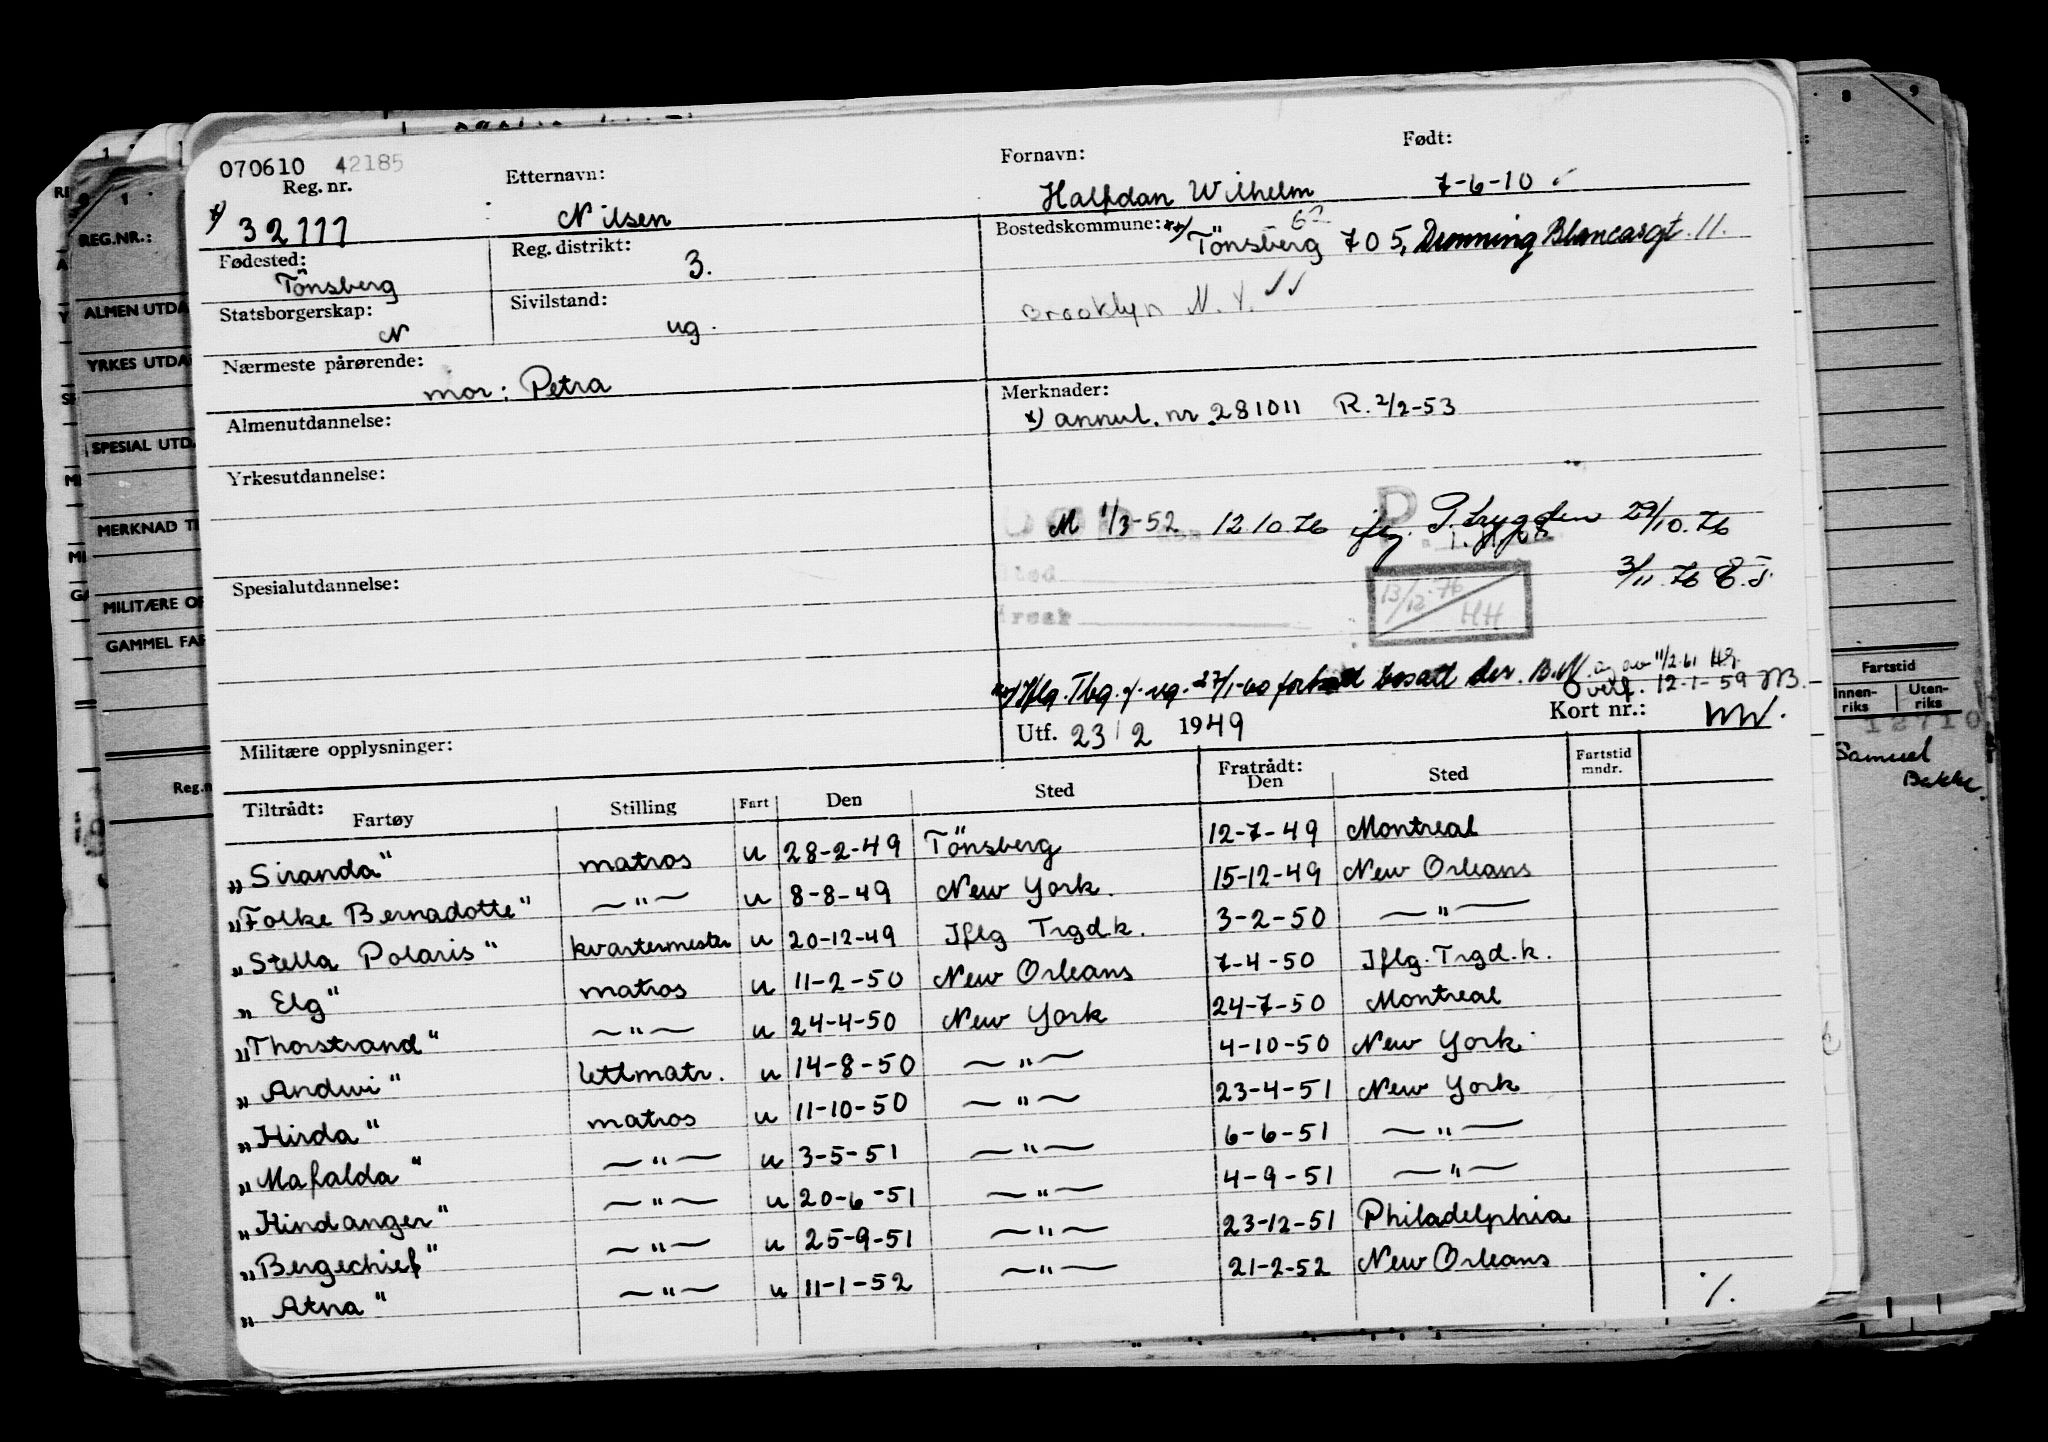 070610 42185
Reg. nr. Etternavn: Fornavn: Født:
*) 32777 Nilsen Halfdan Wilhelm 7-6-10
Fødested: Reg. distrikt: Bostedskommune: **) 62
Tönsberg 3. Tönsberg 705, Dronning Blancasgt. 11.
Statsborgerskap: Sivilstand: Brooklyn N.Y.
N ug.
Nærmeste pårørende:
mor: Petra
Merknader:
*) annul. nr. 281011 R. 2/2-53
Almenutdannelse:
Yrkesutdannelse:
M 1/3-52 12 10.76 iflg. P. trygden 29/10.76
3/11.76 E.J.
13/12.76
HH
Spesialutdannelse:
Iflg. Tbg. f. rg. 27/1-60 fortsatt bosatt der. B.N. 11/2.61
Overf. 12-1-59
Utf. 23/2 1949 Kort nr.:
Militære opplysninger:
Tiltrådt: Fartøy Stilling Fart Den Sted Fratrådt: Den Sted Fartstid mndr.
„Siranda" matros u 28-2-49 Tönsberg 12-7-49 Montreal
„Folke Bernadotte" —"— u 8-8-49 New York. 15-12-49 New Orleans
„Stella Polaris" kvartermester u 20-12-49 Iflg Trgd.k. 3-2-50 —"—
„Elg" matros u 11-2-50 New Orleans 7-4-50 Iflg. Trgd.k.
„Thorstrand" —"— u 24-4-50 New York 24-7-50 Montreal
„Andwi" lettmatr. u 14-8-50 —"— 4-10-50 New York
„Hirda" matros u 11-10-50 —"— 23-4-51 New York
„Mafalda" —"— u 3-5-51 —"— 6-6-51 —"—
„Hindanger" —"— u 20-6-51 —"— 4-9-51 —"—
„Bergechief" —"— u 25-9-51 —"— 23-12-51 Philadelphia
„Atna" —"— u 11-1-52 —"— 21-2-52 New Orleans
./.
REG.NR.:
ALMEN UTDA
YRKES UTDA
SPESIAL UTD
MERKNAD TI
MILITÆRE OP
GAMMEL FAR
Reg.n
8 9
Fartstid
Innenriks Utenriks
Samuel
Bakke.